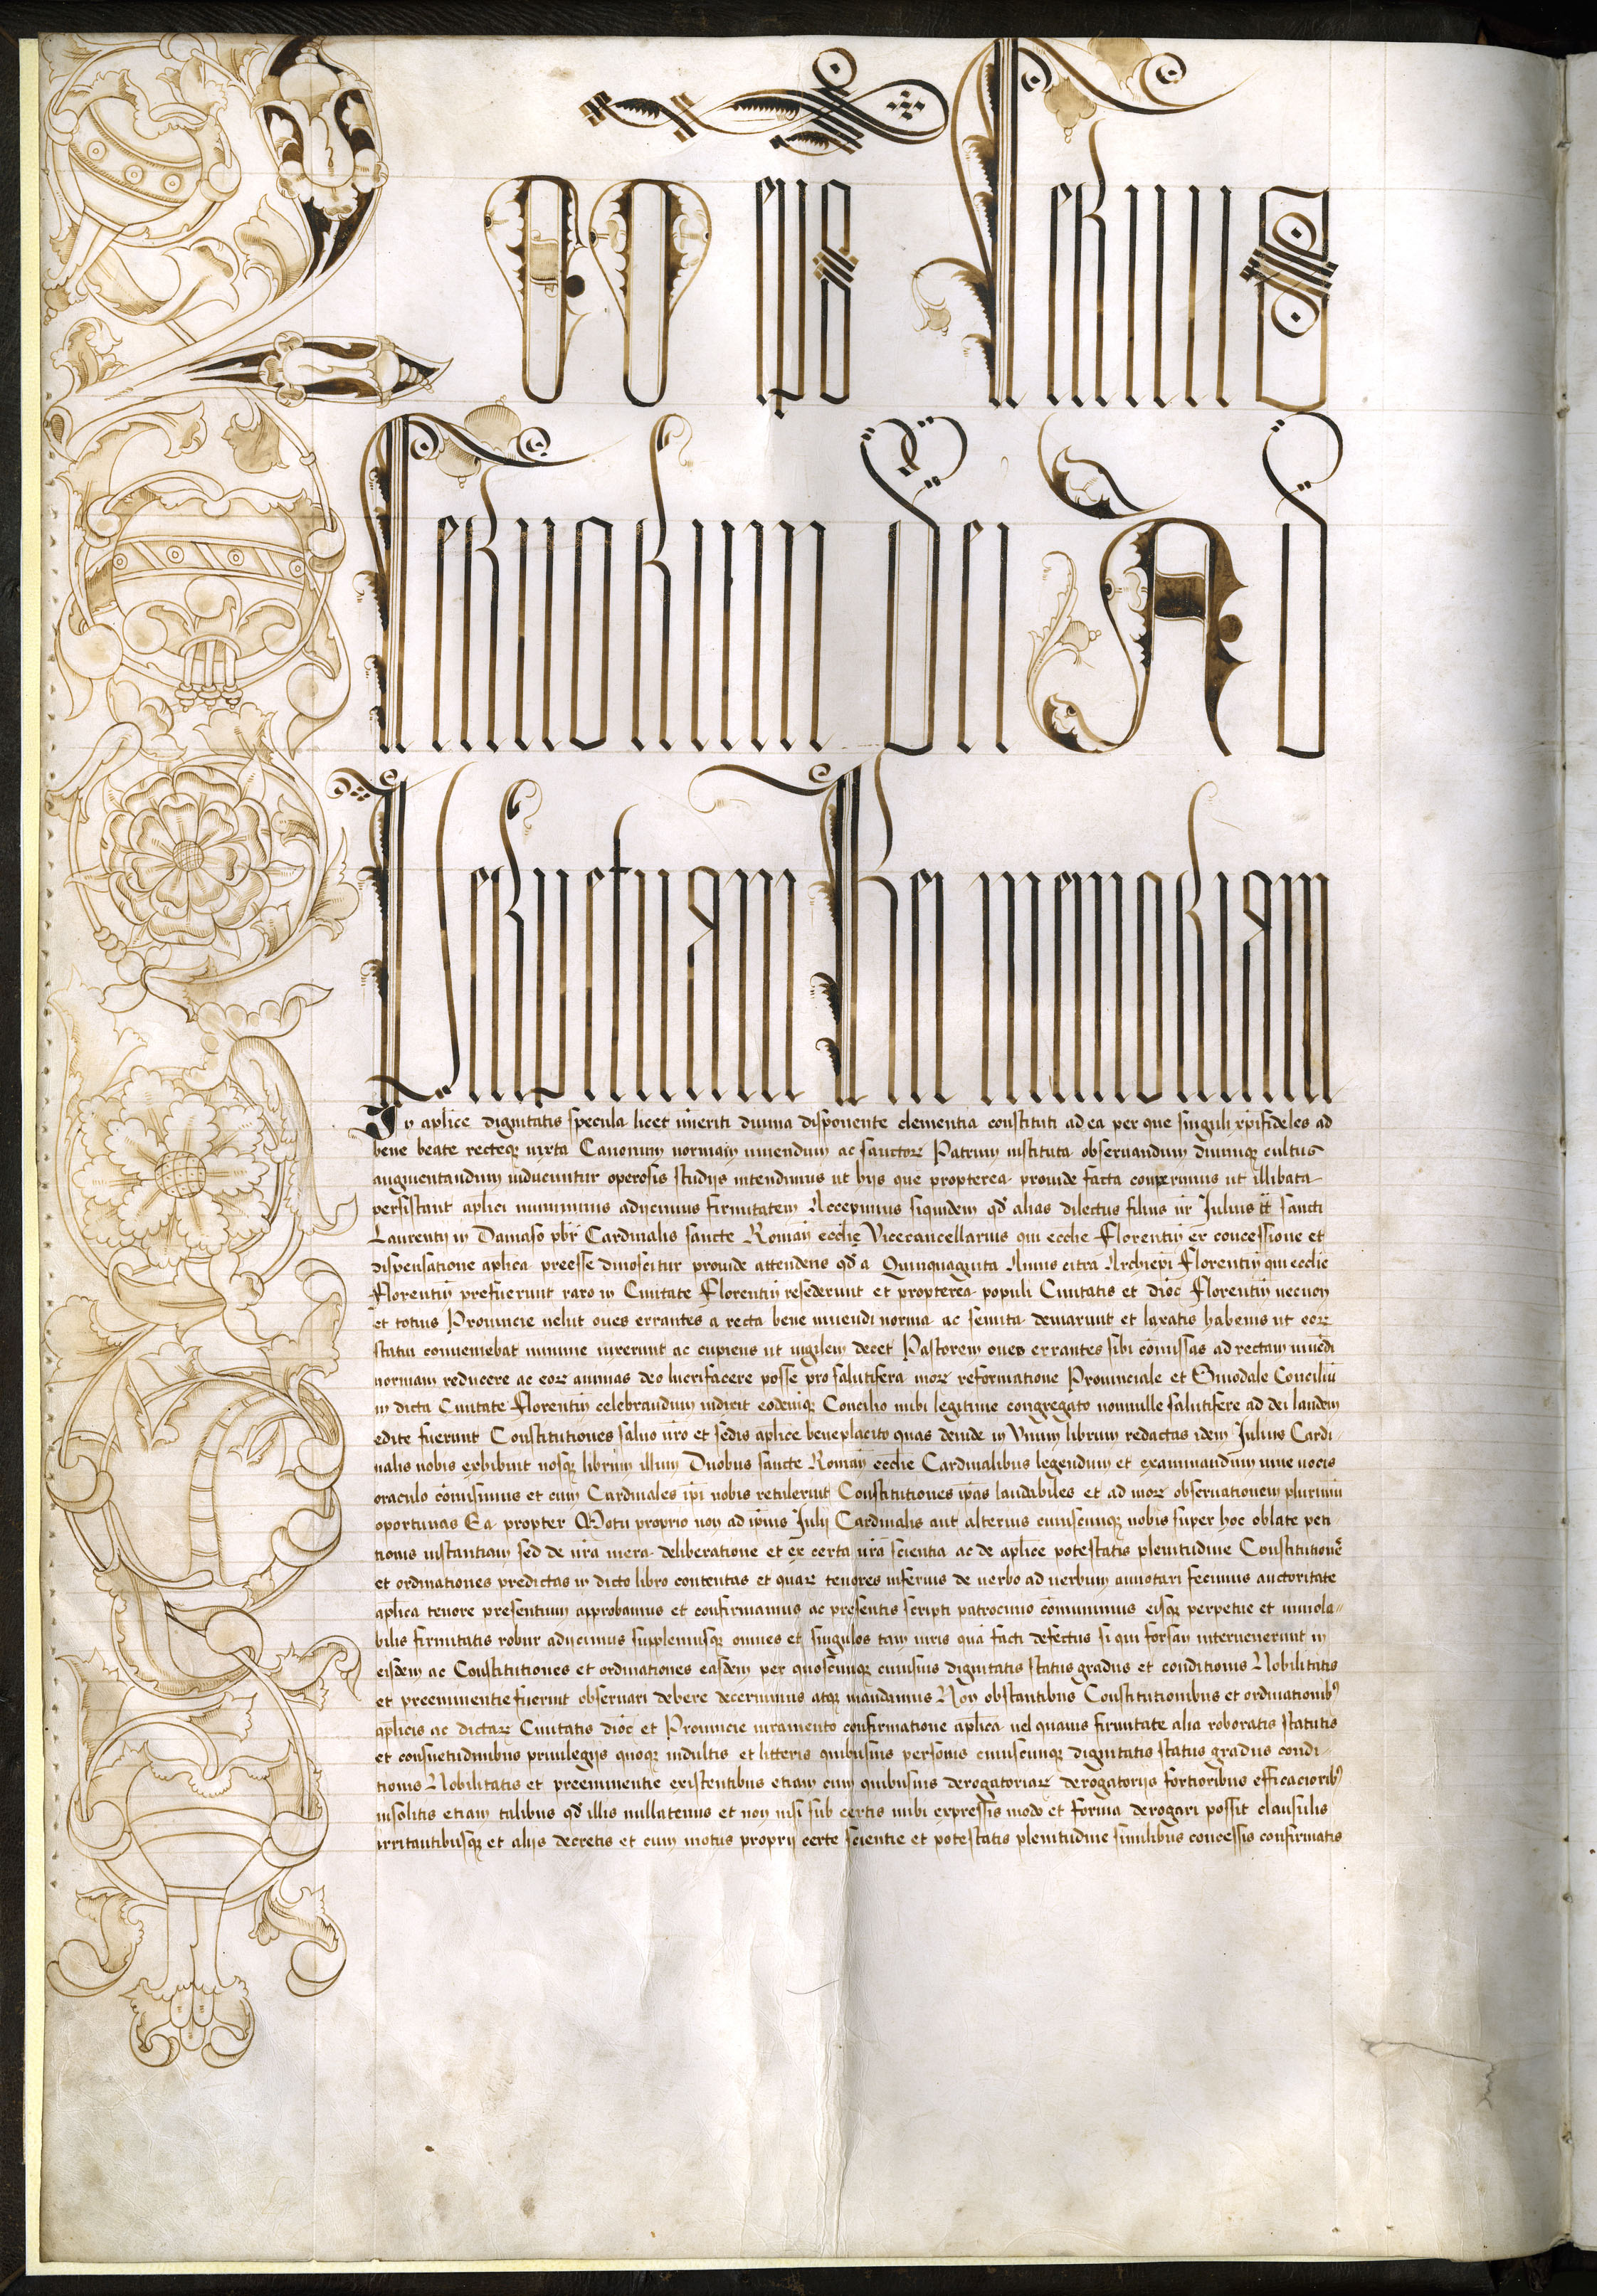 EPS SERUUS
SERUORUM DEI AD
PERPETUAM REI MEMORIAM
In aplice dignitatis specula licet imeriti diuina disponente clementia constituti ad ea per que singuli xpifideles ad
bene beate recteq iuxta Canonum normam uiuendum ac sanctorȝ Patrum instituta obseruandum diuinuq cultus
augmentandum inducuntur operosis studijs intendimus ut hijs que propterea prouide facta comperimus ut illibata
persistant aplici muniminis adijcimus firmitatem Accepimus siquidem qd alias dilectus filius nr Julius tt sancti
Laurentij in Damaso pbr Cardinalis sancte Roman ecclie Vicecancellarius qui ecclie Florentin ex concessione et
dispensatione aplica preesse dinoscitur prouide attendens qd a Quinquaginta Annis citra Archiepi Florentin qui ecclie
Florentin prefuerunt raro in Ciuitate Florentin resederunt et propterea populi Ciuitatis et dioc Florentin necnon
et totius Prouincie uelut oues errantes a recta bene uiuendi norma ac semita deuiarunt et laxatis habenis ut eorȝ
statui conueniebat minime uixerunt ac cupiens ut uigilem decet Pastorem oues errantes sibi comissas ad rectam uiuedi
normam reducere ac eorȝ animas deo lucrifacere posse pro salutifera morȝ reformatione Prouinciale et Sinodale Conciliu
in dicta Ciuitate Florentin celebrandum indixit eodemq Concilio inibi legitime congregato nonnulle salutifere ad dei laudem
edite fuerunt Constitutiones saluo nro et sedis aplice beneplacito quas deinde in Vnum librum redactas idem Julius Cardi-
nalis nobis exhibuit nosq librum illum Duobus sancte Roman ecclie Cardinalibus legendum et examinandum uiue uocis
oraculo comisimus et cum Cardinales ipi nobis retulerint Constitutiones ipas laudabiles et ad morȝ obseruationem plurimu
oportunas Ea propter Motu proprio non ad ipius Julij Cardinalis aut alterius cuiuscunq nobis super hoc oblate peti
tionis instantiam sed de nra mera deliberatione et ex certa nra scientia ac de aplice potestatis plenitudine Constitutiones
et ordinationes predictas in dicto libro contentas et quarȝ tenores inferius de uerbo ad uerbum annotari fecimus auctoritate
aplica tenore presentium approbamus et confirmamus ac presentis scripti patrocinio comunimus eisq perpetue et inuiola-
bilis firmitatis robur adijcimus supplemusq omnes et singulos tam iuris qua facti defectus si qui forsan interuenerunt in
eisdem ac Constitutiones et ordinationes easdem per quoscunq cuiusuis dignitatis status gradus et conditionis Nobilitatis
et preeminentie fuerint obseruari debere decernimus atq mandamus Non obstantibus Constitutionibus et ordinationibꝰ
aplicis ac dictarȝ Ciuitatis dioc et Prouincie iuramento confirmatione aplica uel quauis firmitate alia roboratis statutis
et consuetudinibus priuilegijs quoq indultis et litteris quibusuis personis cuiuscunq dignitatis status gradus condi-
tionis Nobilitatis et preeminentie existentibus etiam cum quibusuis derogatoriarȝ derogatorijs fortioribus efficacioribꝰ
insolitis etiam talibus qd illis nullatenus et non nisi sub certis inibi expressis modo et forma derogari possit clausulis
irritantibusq et alijs decretis et cum motus proprij certe scientie et potestatis plenitudine similibus concessis confirmatis